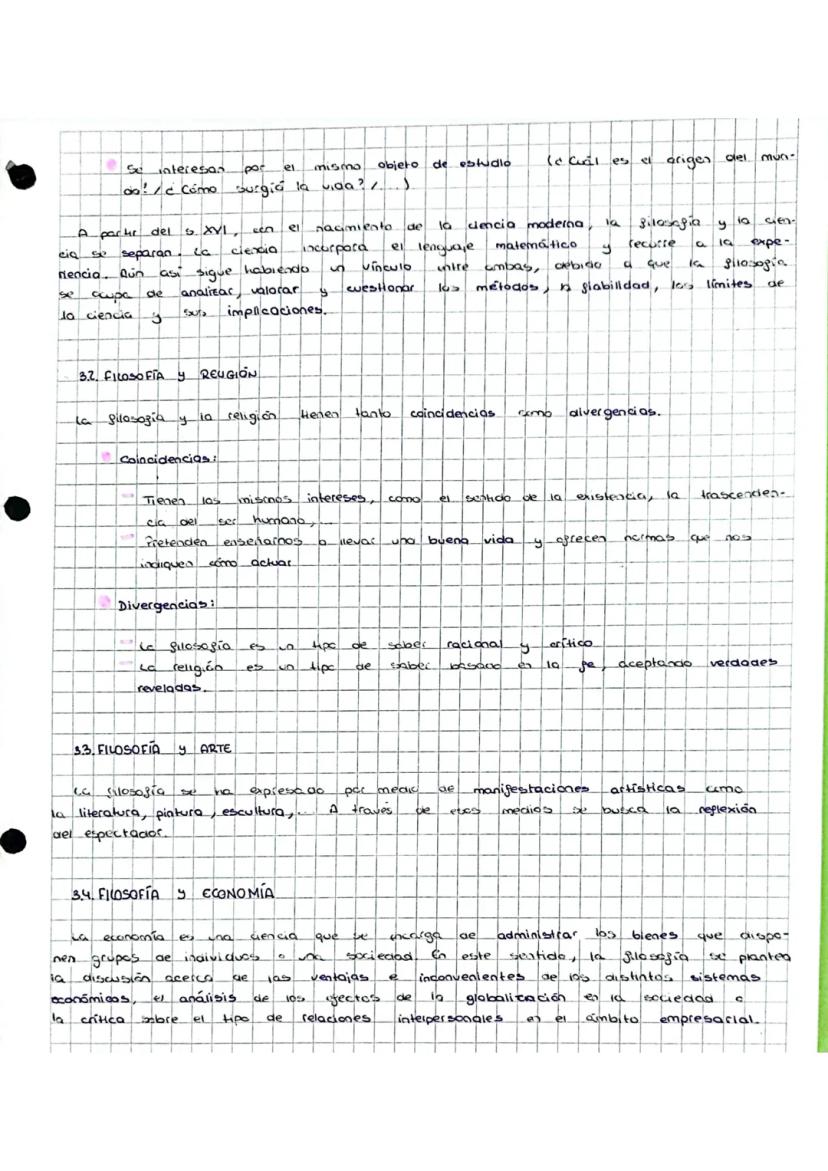 Se interesan por el mismo objeto de estudio (¿Cuál es el origen del mun-
do? / ¿Cómo surgió la vida? / ...)
A partir del s. XVI, con el nacimiento de la ciencia moderna, la filosofía y la cien-
cia se separan. La ciencia incorpora el lenguaje matemático y recurre a la expe-
riencia. Aún así sigue habiendo un vínculo entre ambas, debido a que la filosofía
se ocupa de analizar, valorar y cuestionar los métodos, la fiabilidad, los límites de
la ciencia y sus implicaciones.
3.2. FILOSOFÍA y RELIGIÓN
La filosofía y la religión tienen tanto coincidencias como divergencias.
Coincidencias:
Tienen los mismos intereses, como el sentido de la existencia, la trascenden-
cia del ser humano,...
Pretenden enseñarnos a llevar una buena vida y ofrecen normas que nos
indiquen cómo actuar
Divergencias:
La filosofía es un tipo de saber racional y crítico
La religión es un tipo de saber basado en la fe, aceptando verdades
reveladas.
3.3. FILOSOFÍA y ARTE
La filosofía se ha expresado por medio de manifestaciones artísticas como
la literatura, pintura, escultura,... A través de estos medios se busca la reflexión
del espectador.
3.4. FILOSOFÍA y ECONOMÍA
La economía es una ciencia que se encarga de administrar los bienes que dispo-
nen grupos de individuos o una sociedad. En este sentido, la filosofía se plantea
la discusión acerca de las ventajas e inconvenientes de los distintos sistemas
económicos, el análisis de los efectos de la globalización en la sociedad o
la crítica sobre el tipo de relaciones interpersonales en el ámbito empresarial.